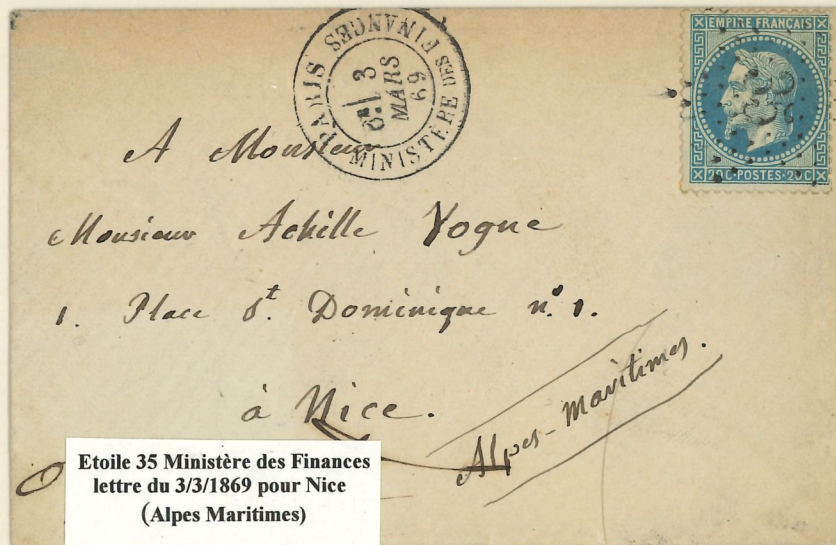 PARIS MINISTÈRE DES FINANCES
3
MARS
69
EMPIRE FRANÇAIS
35
20C·POSTES·20C
A Monsieur
Monsieur Achille Vogue
1. Place St. Dominique n°. 1.
à Nice.
Alpes-Maritimes.
Etoile 35 Ministère des Finances
lettre du 3/3/1869 pour Nice
(Alpes Maritimes)